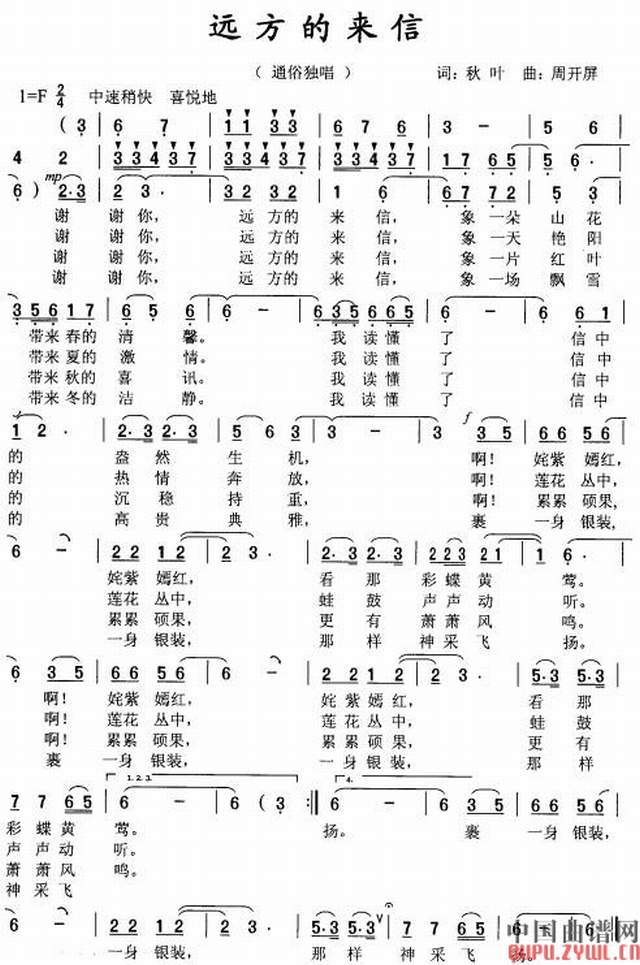 远方的来信
（ 通俗独唱 ） 词：秋 叶 曲：周开屏
1=F 2/4 中速稍快 喜悦地
( 3 | 6 7 | 1 1 3 3 | 6 7 6 | 3 － | 5 －
4 2 | 3 3 4 3 7 | 3 3 4 3 7 | 1 7 6 5 | 5 6 ·
mp
6 ) 2·3 | 2 3 · | 3 2 3 2 | 1 6 | 6 7 7 2 | 5 3
谢 谢 你， 远 方 的 来 信， 象 一 朵 山 花
谢 谢 你， 远 方 的 来 信， 象 一 天 艳 阳
谢 谢 你， 远 方 的 来 信， 象 一 片 红 叶
谢 谢 你， 远 方 的 来 信， 象 一 场 飘 雪
3 5 6 1 7 | 5 6 · | 6 － | 6 3 5 6 1 6 | 6 － | 6 6 1
带来 春的 清 馨。 我 读 懂 了 信 中
带来 夏的 激 情。 我 读 懂 了 信 中
带来 秋的 喜 讯。 我 读 懂 了 信 中
带来 冬的 洁 静。 我 读 懂 了 信 中
f
1 2 · | 2·3 2·3 | 5 6 3 | 3 － | 3 3 5 | 6 6 5 6
的 盎 然 生 机， 啊！ 姹紫 嫣红，
的 热 情 奔 放， 啊！ 莲花 丛中，
的 沉 稳 持 重， 啊！ 累累 硕果，
的 高 贵 典 雅， 裹 一身 银装，
6 － | 2 2 1 2 | 2 3 · | 2·3 5·3 | 2 2 3 7 1 | 1 6 ·
姹紫 嫣红， 看 那 彩 蝶 黄 莺。
莲花 丛中， 蛙 鼓 声 声 动 听。
累累 硕果， 更 有 萧 萧 风 鸣。
一身 银装， 那 样 神 采 飞 扬。
6 3 5 | 6 6 5 6 | 6 － | 2 2 1 2 | 2 3 · | 5·3 5·3
啊！ 姹紫 嫣红， 姹紫 嫣红， 看 那
啊！ 莲花 丛中， 莲花 丛中， 蛙 鼓
啊！ 累累 硕果， 累累 硕果， 更 有
裹 一身 银装， 一身 银装， 那 样
1. 2. 3. 4.
7 7 6 5 | 6 － | 6 ( 3 :‖ 6 － | 6 3 5 | 6 6 5 6
彩 蝶 黄 莺。 扬。 裹 一身 银装，
声 声 动 听。
萧 萧 风 鸣。
神 采 飞
6 － | 2 2 1 2 | 2 3 · | 5·3 5·3
一身 银装， 那 样 神 采 飞 扬。
中国曲谱网
QUPU.ZYWL.CN